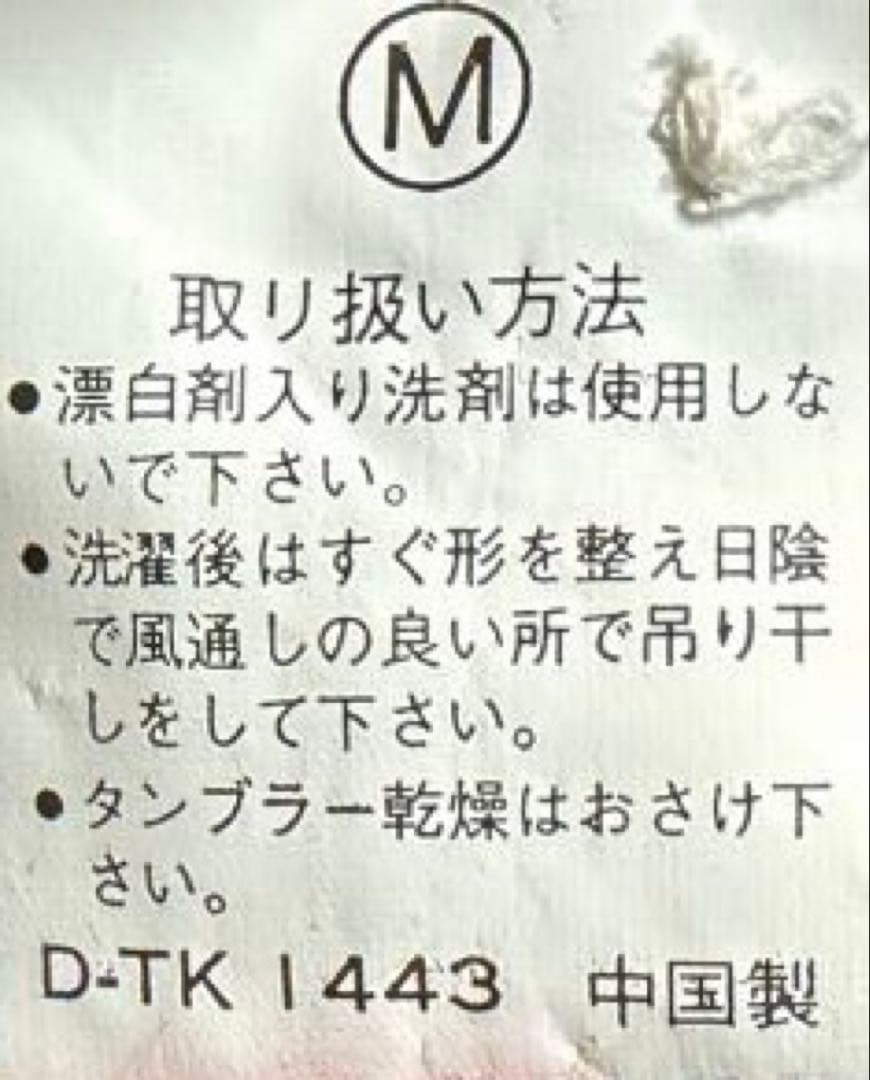 M
取り扱い方法
●漂白剤入り洗剤は使用しな
いで下さい。
●洗濯後はすぐ形を整え日陰
で風通しの良い所で吊り干
しをして下さい。
●タンブラー乾燥はおさけ下
さい。
D-TK 1443 中国製